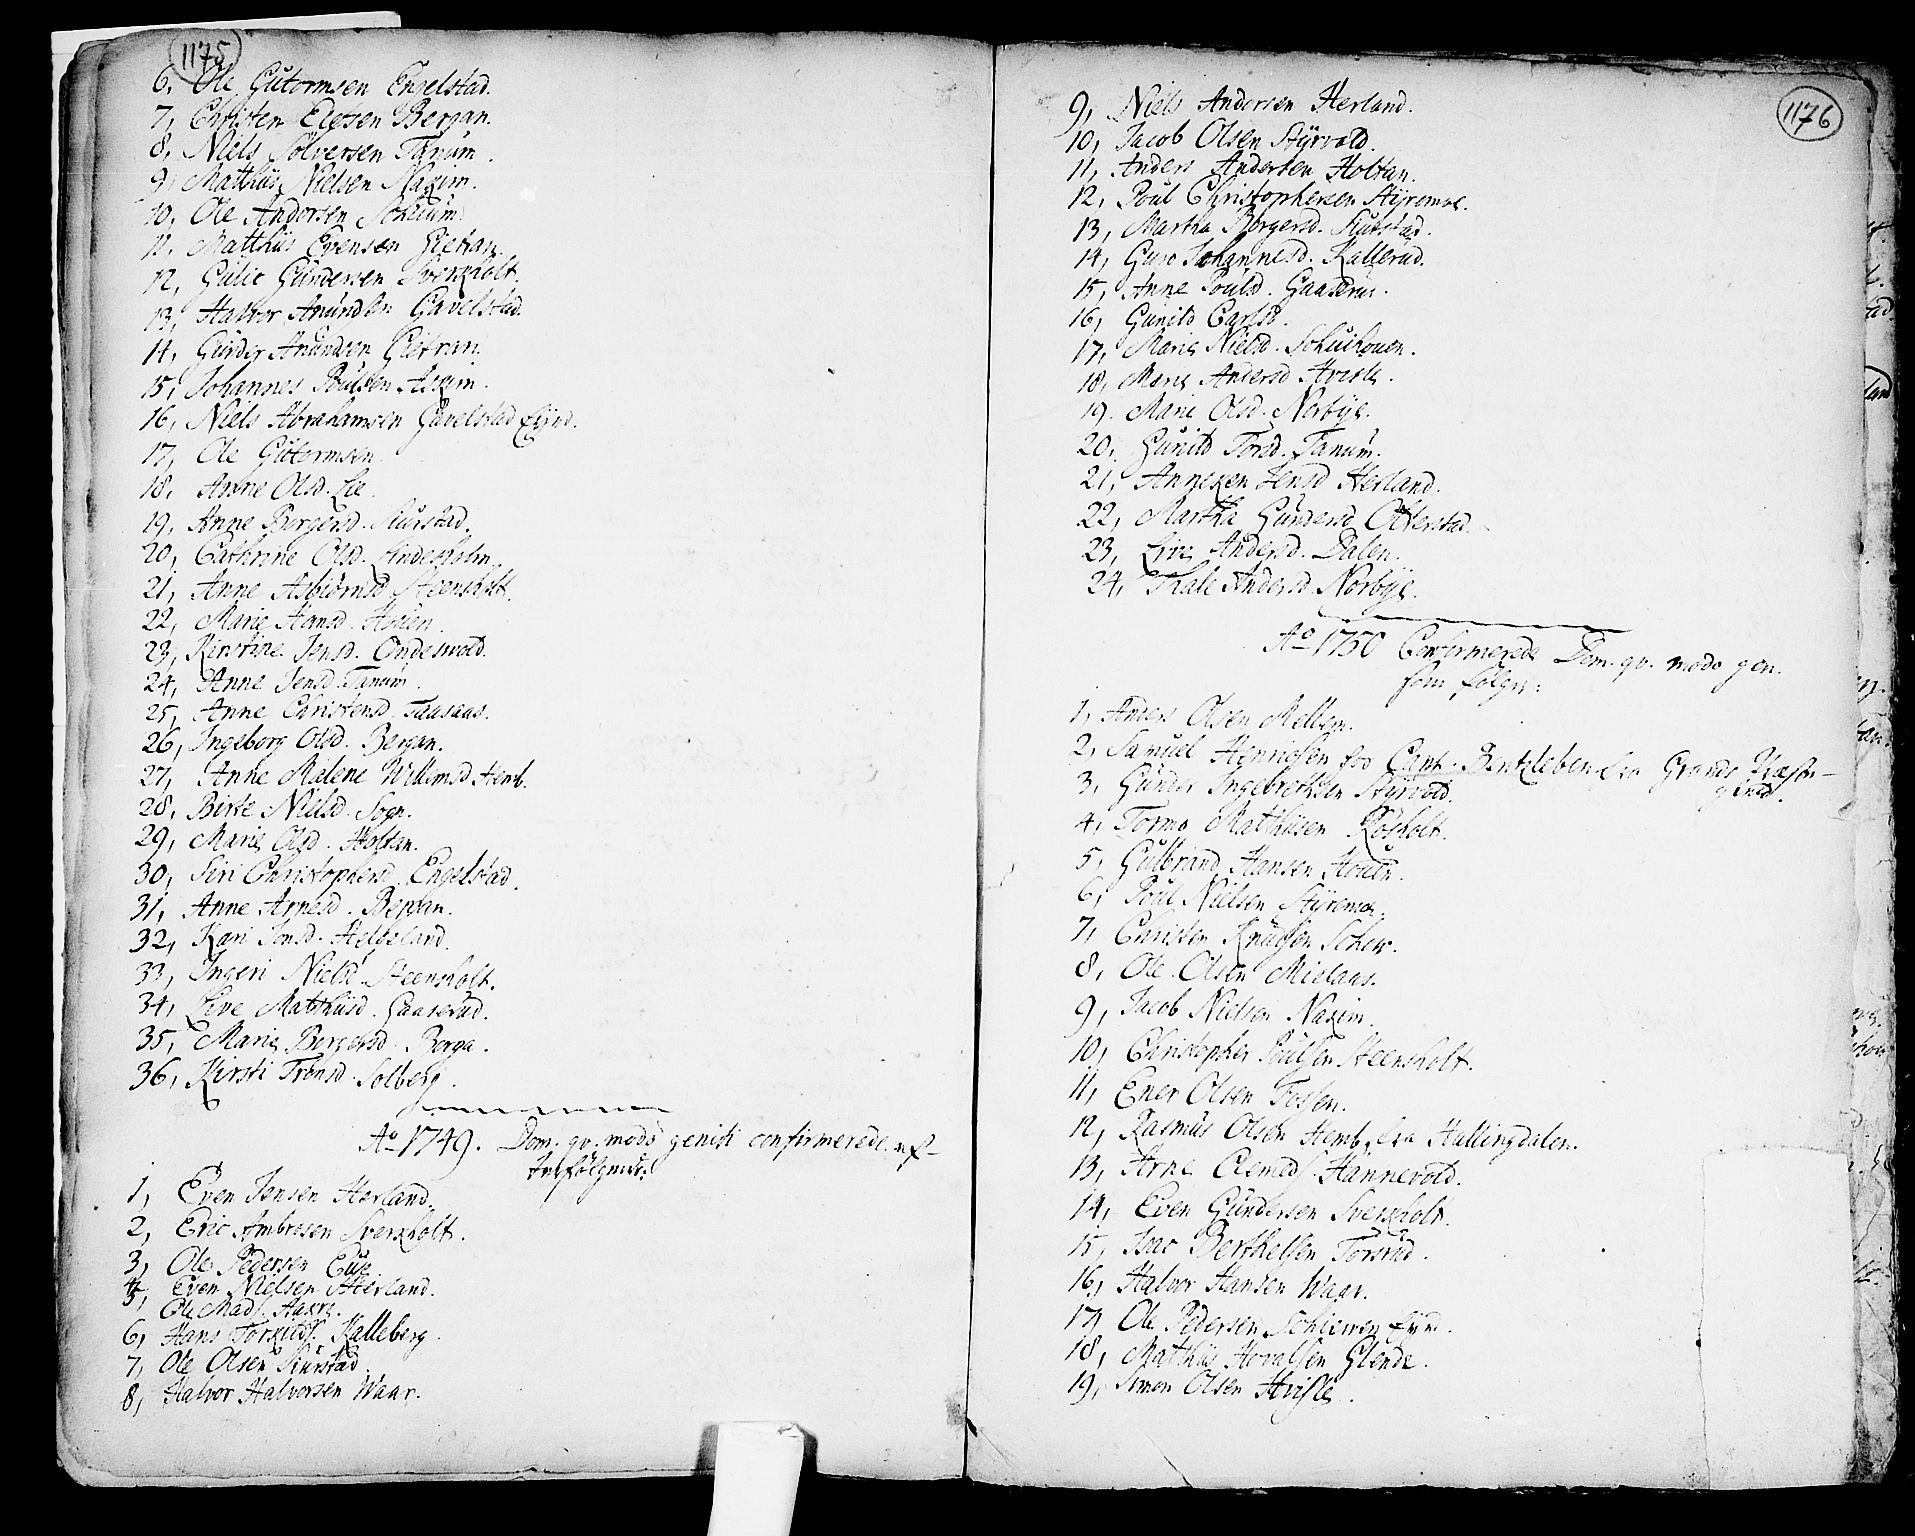 1175
6. Ole Gutormsen Engelstad.
7, Christen Elefsen Bergan.
8, Niels Sölversen Tanum.
9, Matthiis Nielsen Naxim.
10. Ole Andersen
11. Matthiis Evensen Gietran.
12, Gulic Gundersen Sverkholt.
13, Halvor Anundsen Gavelstad.
14, Gunder Anundsen Gietran.
15, Johannes Poulsen Askim.
16, Niels Abrahamsen Gavelstad Eijed.
17, Ole Gutormsen
18. Anne Olsd. Lie.
19, Anne Borgersd. Skurstad.
20, Cathrine Olsd. Lindesholm.
21, Anne Asbiörnsd. Steensholt.
22, Marie Hansd. Houen.
23, Kirstine Jensd. Ondesvold.
24, Anne Jensd. Tanum.
25, Anne Christensd. Taasaas.
26, Ingeborg Olsd. Bergan.
27, Anne Malene Willemsd. Hemb.
28, Birte Nielsd. Sogn.
29, Marie Olsd. Holtan.
30, Siri Christophersd. Engelstad.
31, Anne Arnesd. Bergan.
32, Kari Jonsd. Helgeland.
33, Ingeri Nielsd. Steensholt.
34, Live Matthiisd. Gaaserud.
35, Marie Borgersd. Berga.
36, Kirsti Tronsd. Solberg.
Ao 1749. Dom. qv. modo geniti confirmerede ef-
terfölgende:
1, Even Jensen Herland.
2, Eric Ambrosen Sverkholt.
3, Ole Pedersen
4, Even Nielsen Herland.
5, Ole Mads. Aakre.
6, Hans Torkilds. Kalleberg.
7, Ole Olsen Skurstad.
8, Halvor Halvorsen Waar.
1176
9, Niels Andersen Herland.
10, Jacob Olsen Styrvold.
11, Anders Andersen Holtan.
12, Poul Christophersen Styremoe.
13, Martha Borgersd. Skurstad.
14, Guro Johannesd. Kallerud.
15, Anne Poulsd. Gaaserud.
16, Gunild Carlsd.
17, Marie Nielsd. Schuihouen.
18, Marie Andersd. Hvisle.
19. Marie Olsd. Norbye.
20, Gunild Torsd. Tanum.
21, Anneken Jensd. Herland.
22, Martha Gundersd. Otterstad.
23, Live Andersd. Dalen.
24, Thale Andersd. Norbye.
Ao 1750 Confirmerede Dom. qv. modo gen.
som fölger:
1, Anders Olsen Mellem.
2, Samuel Hennigsen hos Capt. Bentzleben fra Grands Præste-
gield.
3, Gunder Ingebrethsen Styrvold.
4, Tormo Matthiisen Rösholt.
5, Gulbrand Hansen Houen.
6, Poul Nielsen Styremoe.
7, Christen Knudsen Schew.
8, Ole Olsen Mielaas.
9, Jacob Nielsen Naxim.
10, Christopher Poulsen Steensholt.
11, Ener Olsen Fossen.
12, Rasmus Olsen Hemb fra Hallingdalen.
13, Arne Clemeds. Hannevold.
14, Even Gundersen Sverkholt.
15, Isac Berthelsen Torsrud.
16, Halvor Hansen Waar.
17, Ole Pedersen Schiewen Eijed.
18, Matthiis Hovalsen Glende.
19, Simon Olsen Hvisle.